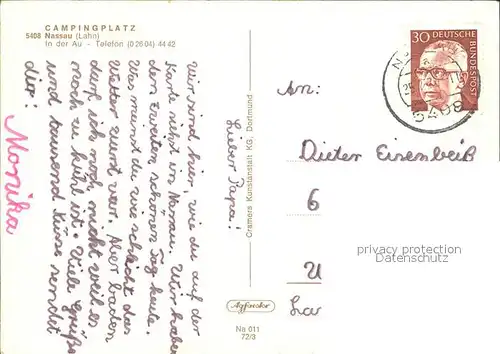 CAMPINGPLATZ
5408 Nassau (Lahn)
In der Au - Telefon (0 26 04) 44 42
Lieber Papa!
Wir sind hier, wie du auf der
Karte siehst in Nassau. Wir haben
den zweiten schönen Tag heute.
Was meinst du wie schlecht das
Wetter zuerst war. Aber baden
darf ich noch nicht weil es
noch zu kühl ist. Viele Grüße
und tausend Küsse sendet
dir!
Monika
Cramers Kunstanstalt KG, Dortmund
Na 011
72/3
30 DEUTSCHE BUNDESPOST
5408
An:
Dieter Eisenbeiß
6
U
La
privacy protection
Datenschutz